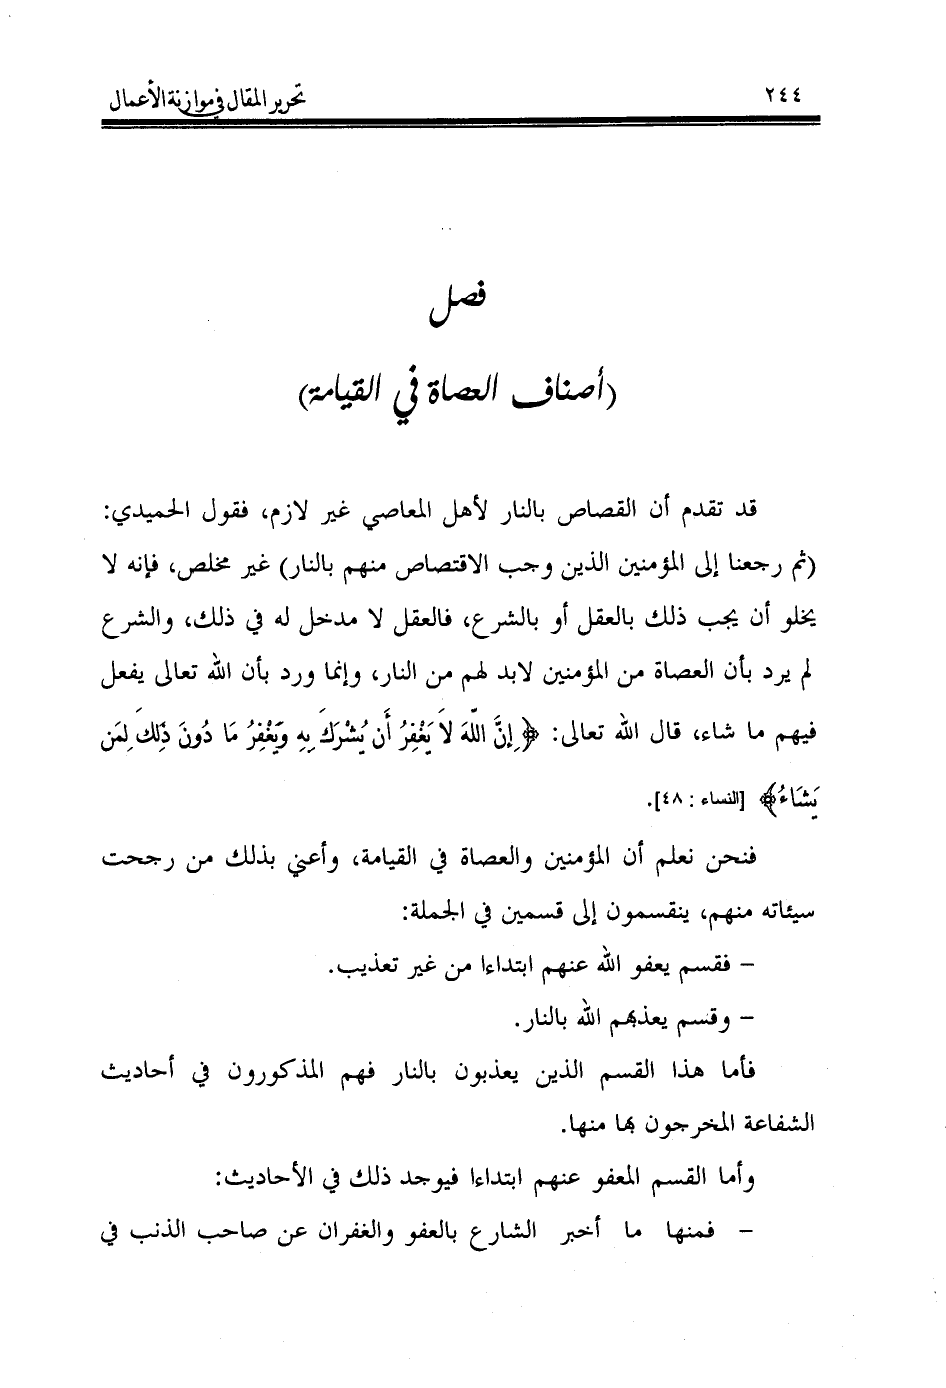 ٢٤٤
تحرير المقال في موازنة الأعمال
فصل
(أصناف العصاة في القيامة)
قد تقدم أن القصاص بالنار لأهل المعاصي غير لازم، فقول الحميدي:
(ثم رجعنا إلى المؤمنين الذين وجب الاقتصاص منهم بالنار) غير مخلص، فإنه لا
يخلو أن يجب ذلك بالعقل أو بالشرع، فالعقل لا مدخل له في ذلك، والشرع
لم يرد بأن العصاة من المؤمنين لابد لهم من النار، وإنما ورد بأن الله تعالى يفعل
فيهم ما شاء، قال الله تعالى: ﴿إِنَّ اللَّهَ لاَ يَغْفِرُ أَن يُشْرَكَ بِهِ وَيَغْفِرُ مَا دُونَ ذَلِكَ لِمَن
يَشَاءُ﴾ [النساء : ٤٨].
فنحن نعلم أن المؤمنين والعصاة في القيامة، وأعني بذلك من رجحت
سيئاته منهم، ينقسمون إلى قسمين في الجملة:
– فقسم يعفو الله عنهم ابتداءا من غير تعذيب.
– وقسم يعذبهم الله بالنار.
فأما هذا القسم الذين يعذبون بالنار فهم المذكورون في أحاديث
الشفاعة المخرجون بها منها.
وأما القسم المعفو عنهم ابتداءا فيوجد ذلك في الأحاديث:
– فمنها ما أخبر الشارع بالعفو والغفران عن صاحب الذنب في